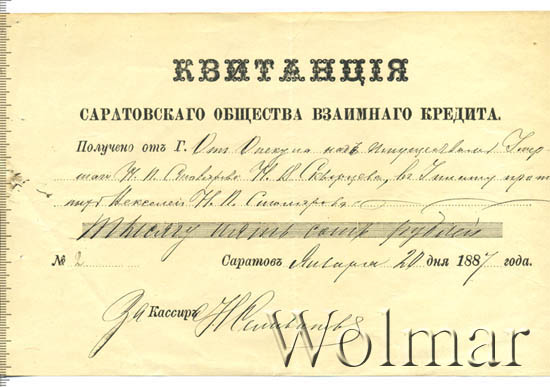 КВИТАНЦІЯ
САРАТОВСКАГО ОБЩЕСТВА ВЗАИМНАГО КРЕДИТА.
Получено отъ Г. Отъ Опекуна надъ имуществомъ Умер-
шаго Н. П. Столярова Н. В. Скворцова, в уплату
Н. П. Столярова
тысячу пять сотъ рублей
№ 2 Саратовъ, Января 20 дня 1887 года.
За Кассиръ
Wolmar